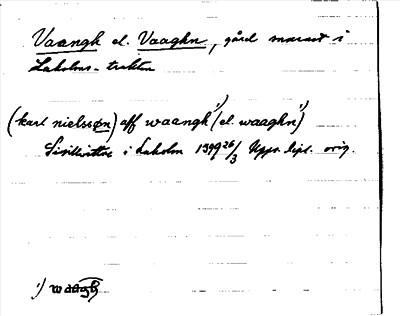 Vaangh el. Vaaghn, gård snarast i
Laholms-trakten
(karl nielssøn) aff waangh¹) (el. waaghn¹)
i Laholm 1399 26/3 Uppr. dipl. orig.
¹) waagh